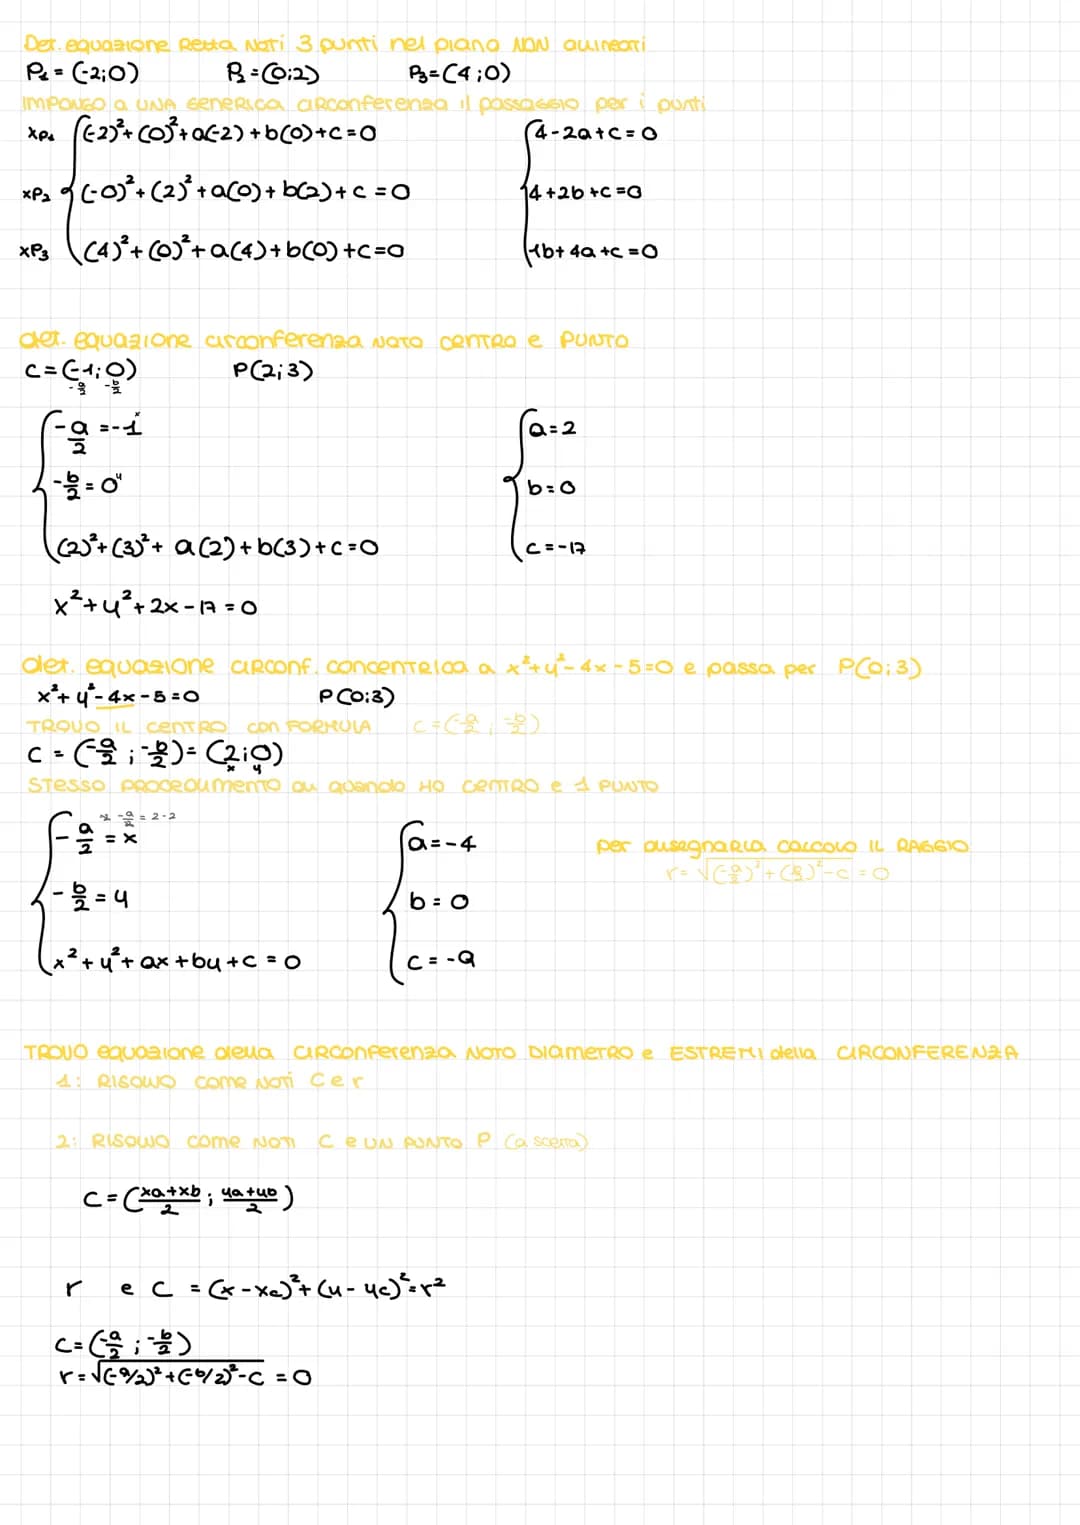 Det. equazione Retta Noti 3 punti nel piano NON allineati
P₁ = (-2;0) P₂ = (0;2) P₃ = (4;0)
IMPONGO a UNA GENERICA circonferenza il passaggio per i punti
xP₁ (-2)²+(0)²+a(-2)+b(0)+c=0 4-2a+c=0
xP₂ (-0)²+(2)²+a(0)+b(2)+c=0 4+2b+c=0
xP₃ (4)²+(0)²+a(4)+b(0)+c=0 16+4a+c=0
det. equazione circonferenza NOTO CENTRO e PUNTO
C=(-1;0) P(2;3)
-a/2 -b/2
-a/2=-1 x a=2
-b/2=0 y b=0
(2)²+(3)²+a(2)+b(3)+c=0 c=-17
x²+y²+2x-17=0
det. equazione CIRCONF. CONCENTRICA a x²+y²-4x-5=0 e passa per P(0;3)
x²+y²-4x-5=0 P(0;3)
TROVO IL CENTRO CON FORMULA C=(-a/2;-b/2)
C=(-a/2;-b/2)=(2;0)
x y
STESSO PROCEDIMENTO di quando HO CENTRO e 1 PUNTO
-a/2=2·2
-a/2=x a=-4 per disegnarla CALCOLO IL RAGGIO
r=√(-a/2)²+(b/2)²-c=0
-b/2=y b=0
x²+y²+ax+by+c=0 c=-9
TROVO equazione della CIRCONFERENZA NOTO DIAMETRO e ESTREMI della CIRCONFERENZA
1: RISOLVO COME NOTI C e r
2: RISOLVO COME NOTI C e UN PUNTO P (a scelta)
C=(xa+xb/2;ya+yb/2)
r e C = (x-xc)²+(y-yc)²=r²
C=(-a/2;-b/2)
r=√(-a/2)²+(-b/2)²-c=0